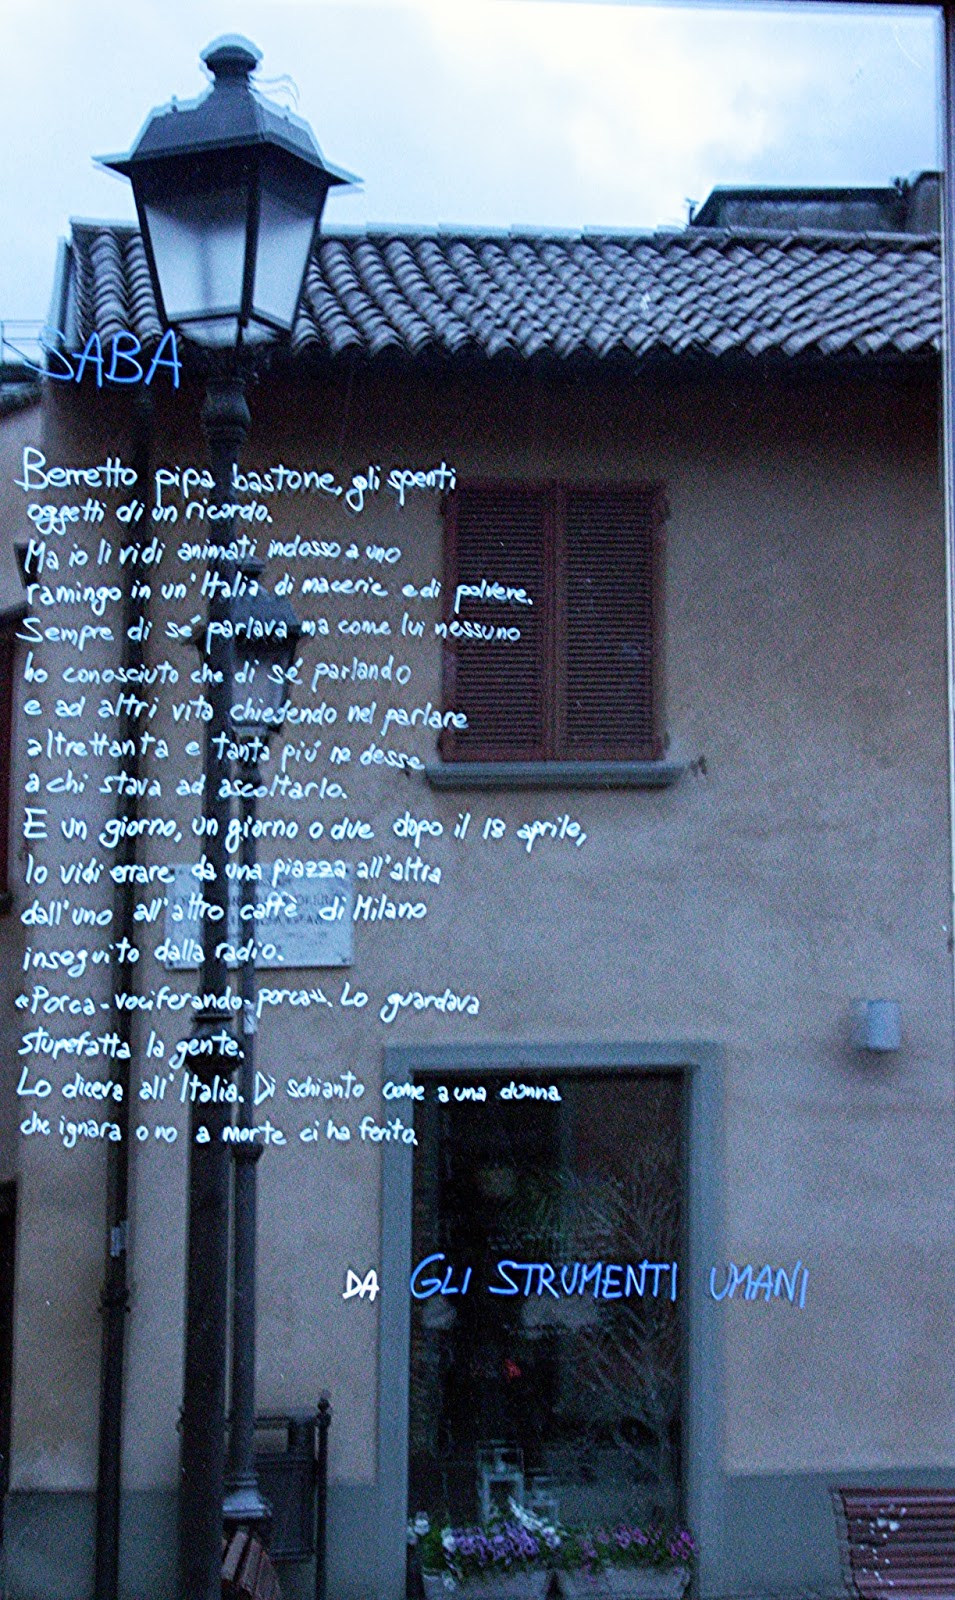 SABA
Berretto pipa bastone, gli spenti
oggetti di un ricordo.
Ma io li vidi animati indosso a uno
ramingo in un'Italia di macerie e di polvere.
Sempre di sé parlava ma come lui nessuno
ho conosciuto che di sé parlando
e ad altri vita chiedendo nel parlare
altrettanta e tanta piú ne desse
a chi stava ad ascoltarlo.
E un giorno, un giorno o due dopo il 18 aprile,
lo vidi errare da una piazza all'altra
dall'uno all'altro caffè di Milano
inseguito dalla radio.
«Porca-vociferando-porca». Lo guardava
stupefatta la gente.
Lo diceva all'Italia. Di schianto come a una donna
che ignara o no a morte ci ha ferito.
DA GLI STRUMENTI UMANI